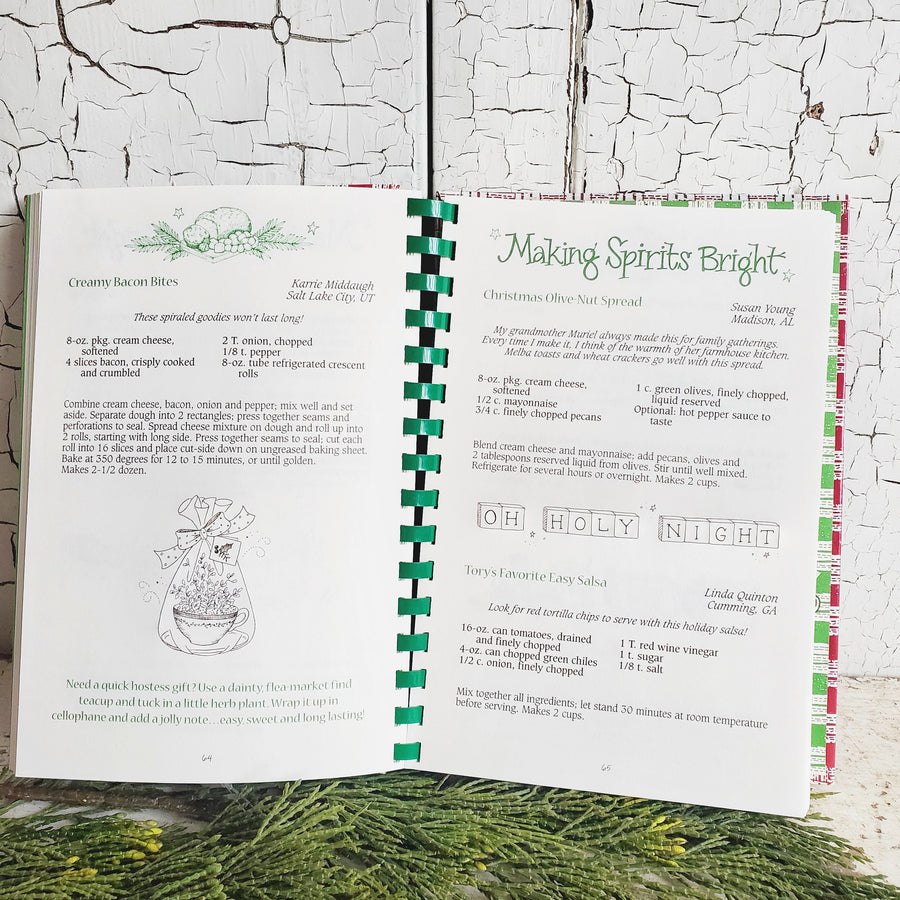 Creamy Bacon Bites
Karrie Middaugh
Salt Lake City, UT
These spiraled goodies won't last long!
8-oz. pkg. cream cheese,
softened
4 slices bacon, crisply cooked
and crumbled
2 T. onion, chopped
1/8 t. pepper
8-oz. tube refrigerated crescent
rolls
Combine cream cheese, bacon, onion and pepper; mix well and set
aside. Separate dough into 2 rectangles; press together seams and
perforations to seal. Spread cheese mixture on dough and roll up into
2 rolls, starting with long side. Press together seams to seal; cut each
roll into 16 slices and place cut-side down on ungreased baking sheet.
Bake at 350 degrees for 12 to 15 minutes, or until golden.
Makes 2-1/2 dozen.
Need a quick hostess gift? Use a dainty, flea-market find
teacup and tuck in a little herb plant. Wrap it up in
cellophane and add a jolly note...easy, sweet and long lasting!
64
Making Spirits Bright
Christmas Olive-Nut Spread
Susan Young
Madison, AL
My grandmother Muriel always made this for family gatherings.
Every time I make it, I think of the warmth of her farmhouse kitchen.
Melba toasts and wheat crackers go well with this spread.
8-oz. pkg. cream cheese,
softened
1/2 c. mayonnaise
3/4 c. finely chopped pecans
1 c. green olives, finely chopped,
liquid reserved
Optional: hot pepper sauce to
taste
Blend cream cheese and mayonnaise; add pecans, olives and
2 tablespoons reserved liquid from olives. Stir until well mixed.
Refrigerate for several hours or overnight. Makes 2 cups.
OH HOLY NIGHT
Tory's Favorite Easy Salsa
Linda Quinton
Cumming, GA
Look for red tortilla chips to serve with this holiday salsa!
16-oz. can tomatoes, drained
and finely chopped
4-oz. can chopped green chiles
1/2 c. onion, finely chopped
1 T. red wine vinegar
1 t. sugar
1/8 t. salt
Mix together all ingredients; let stand 30 minutes at room temperature
before serving. Makes 2 cups.
65